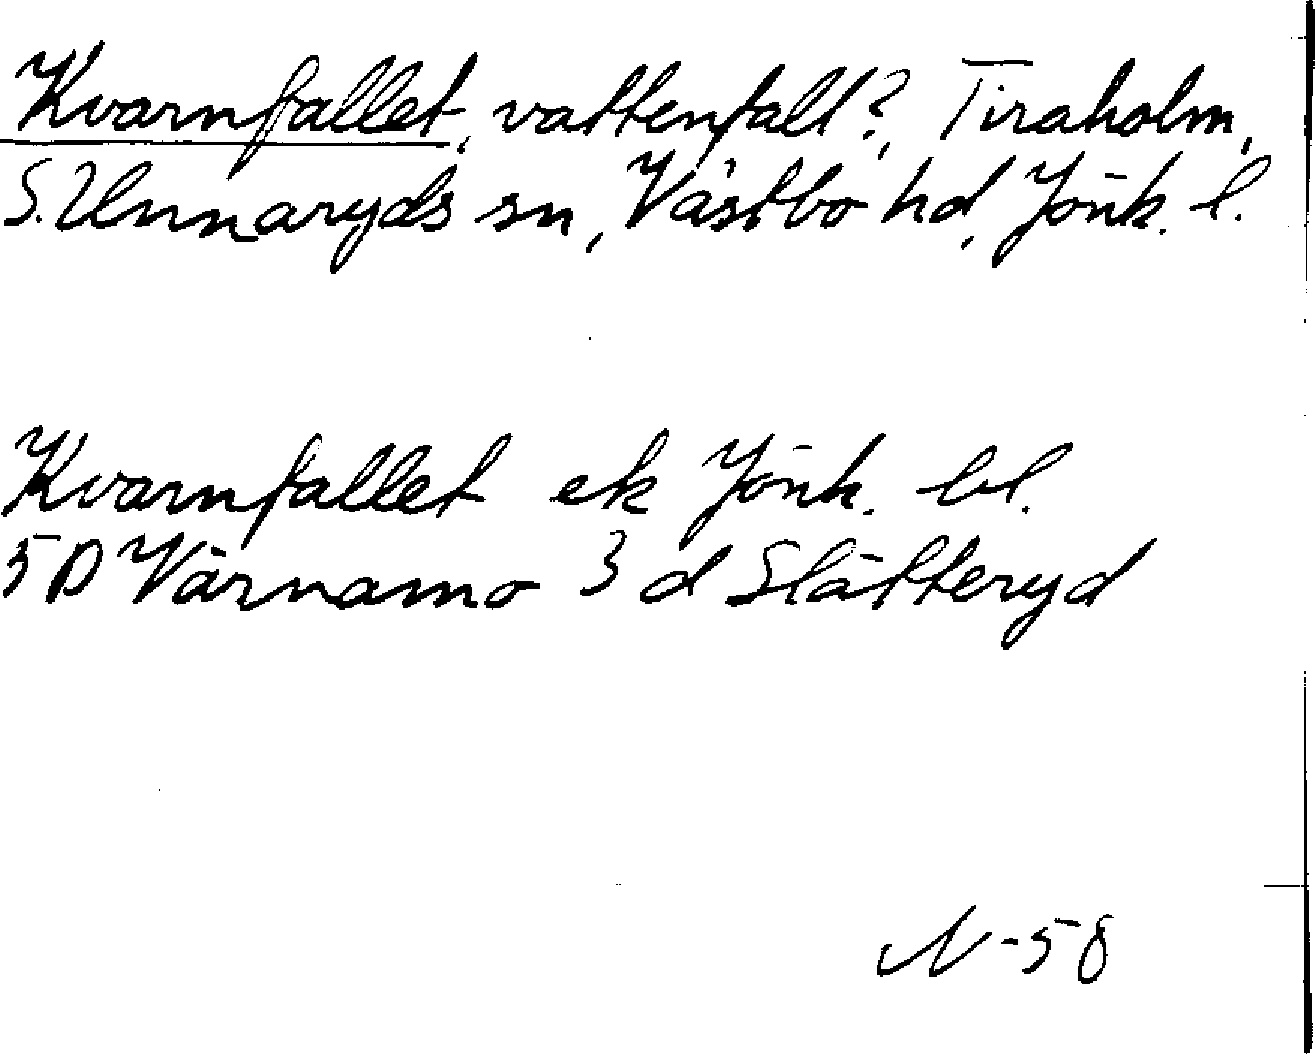 Kvarnfallet, vattenfall?, Tiraholm,
S. Unnaryds sn, Västbo hd, Jönk. l.
Kvarnfallet ek Jönk. bl.
5D Värnamo 3 d Slätteryd
N-58